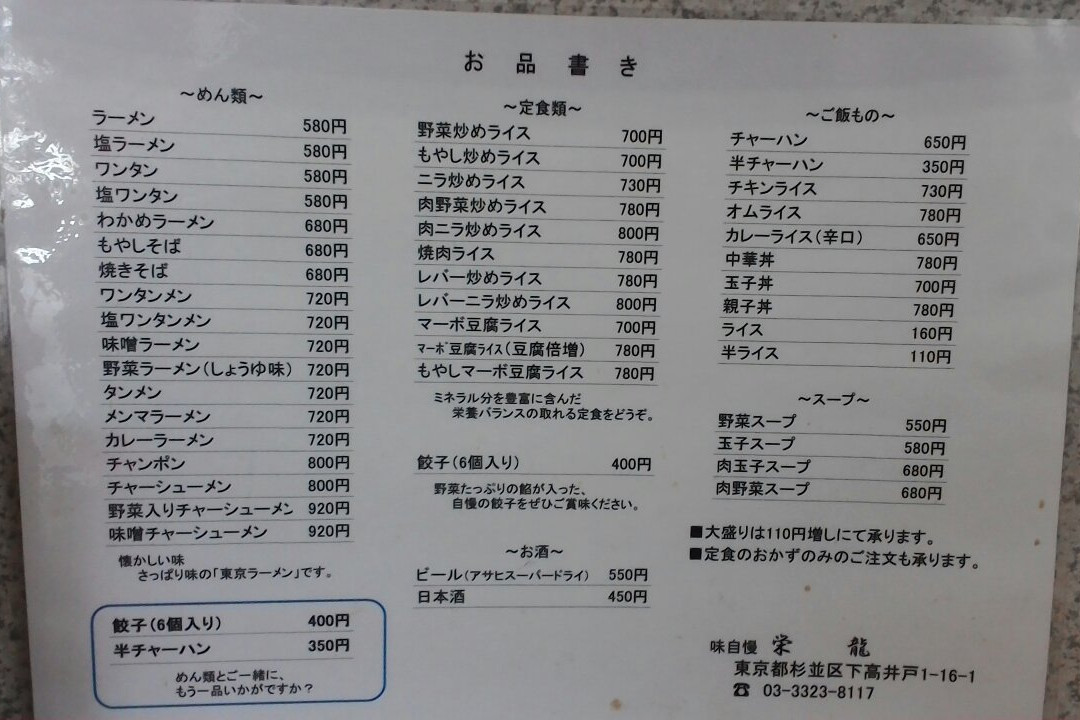 お品書き
～めん類～
ラーメン 580円
塩ラーメン 580円
ワンタン 580円
塩ワンタン 580円
わかめラーメン 680円
もやしそば 680円
焼きそば 680円
ワンタンメン 720円
塩ワンタンメン 720円
味噌ラーメン 720円
野菜ラーメン(しょうゆ味) 720円
タンメン 720円
メンマラーメン 720円
カレーラーメン 720円
チャンポン 800円
チャーシューメン 800円
野菜入りチャーシューメン 920円
味噌チャーシューメン 920円
懐かしい味
さっぱり味の「東京ラーメン」です。
餃子(6個入り) 400円
半チャーハン 350円
めん類とご一緒に、
もう一品いかがですか?
～定食類～
野菜炒めライス 700円
もやし炒めライス 700円
ニラ炒めライス 730円
肉野菜炒めライス 780円
肉ニラ炒めライス 800円
焼肉ライス 780円
レバー炒めライス 780円
レバーニラ炒めライス 800円
マーボ豆腐ライス 700円
マーボ豆腐ライス(豆腐倍増) 780円
もやしマーボ豆腐ライス 780円
ミネラル分を豊富に含んだ
栄養バランスの取れる定食をどうぞ。
餃子(6個入り) 400円
野菜たっぷりの餡が入った、
自慢の餃子をぜひご賞味ください。
～お酒～
ビール(アサヒスーパードライ) 550円
日本酒 450円
～ご飯もの～
チャーハン 650円
半チャーハン 350円
チキンライス 730円
オムライス 780円
カレーライス(辛口) 650円
中華丼 780円
玉子丼 700円
親子丼 780円
ライス 160円
半ライス 110円
～スープ～
野菜スープ 550円
玉子スープ 580円
肉玉子スープ 680円
肉野菜スープ 680円
■大盛りは110円増しにて承ります。
■定食のおかずのみのご注文も承ります。
味自慢 栄龍
東京都杉並区下高井戸1-16-1
☎ 03-3323-8117